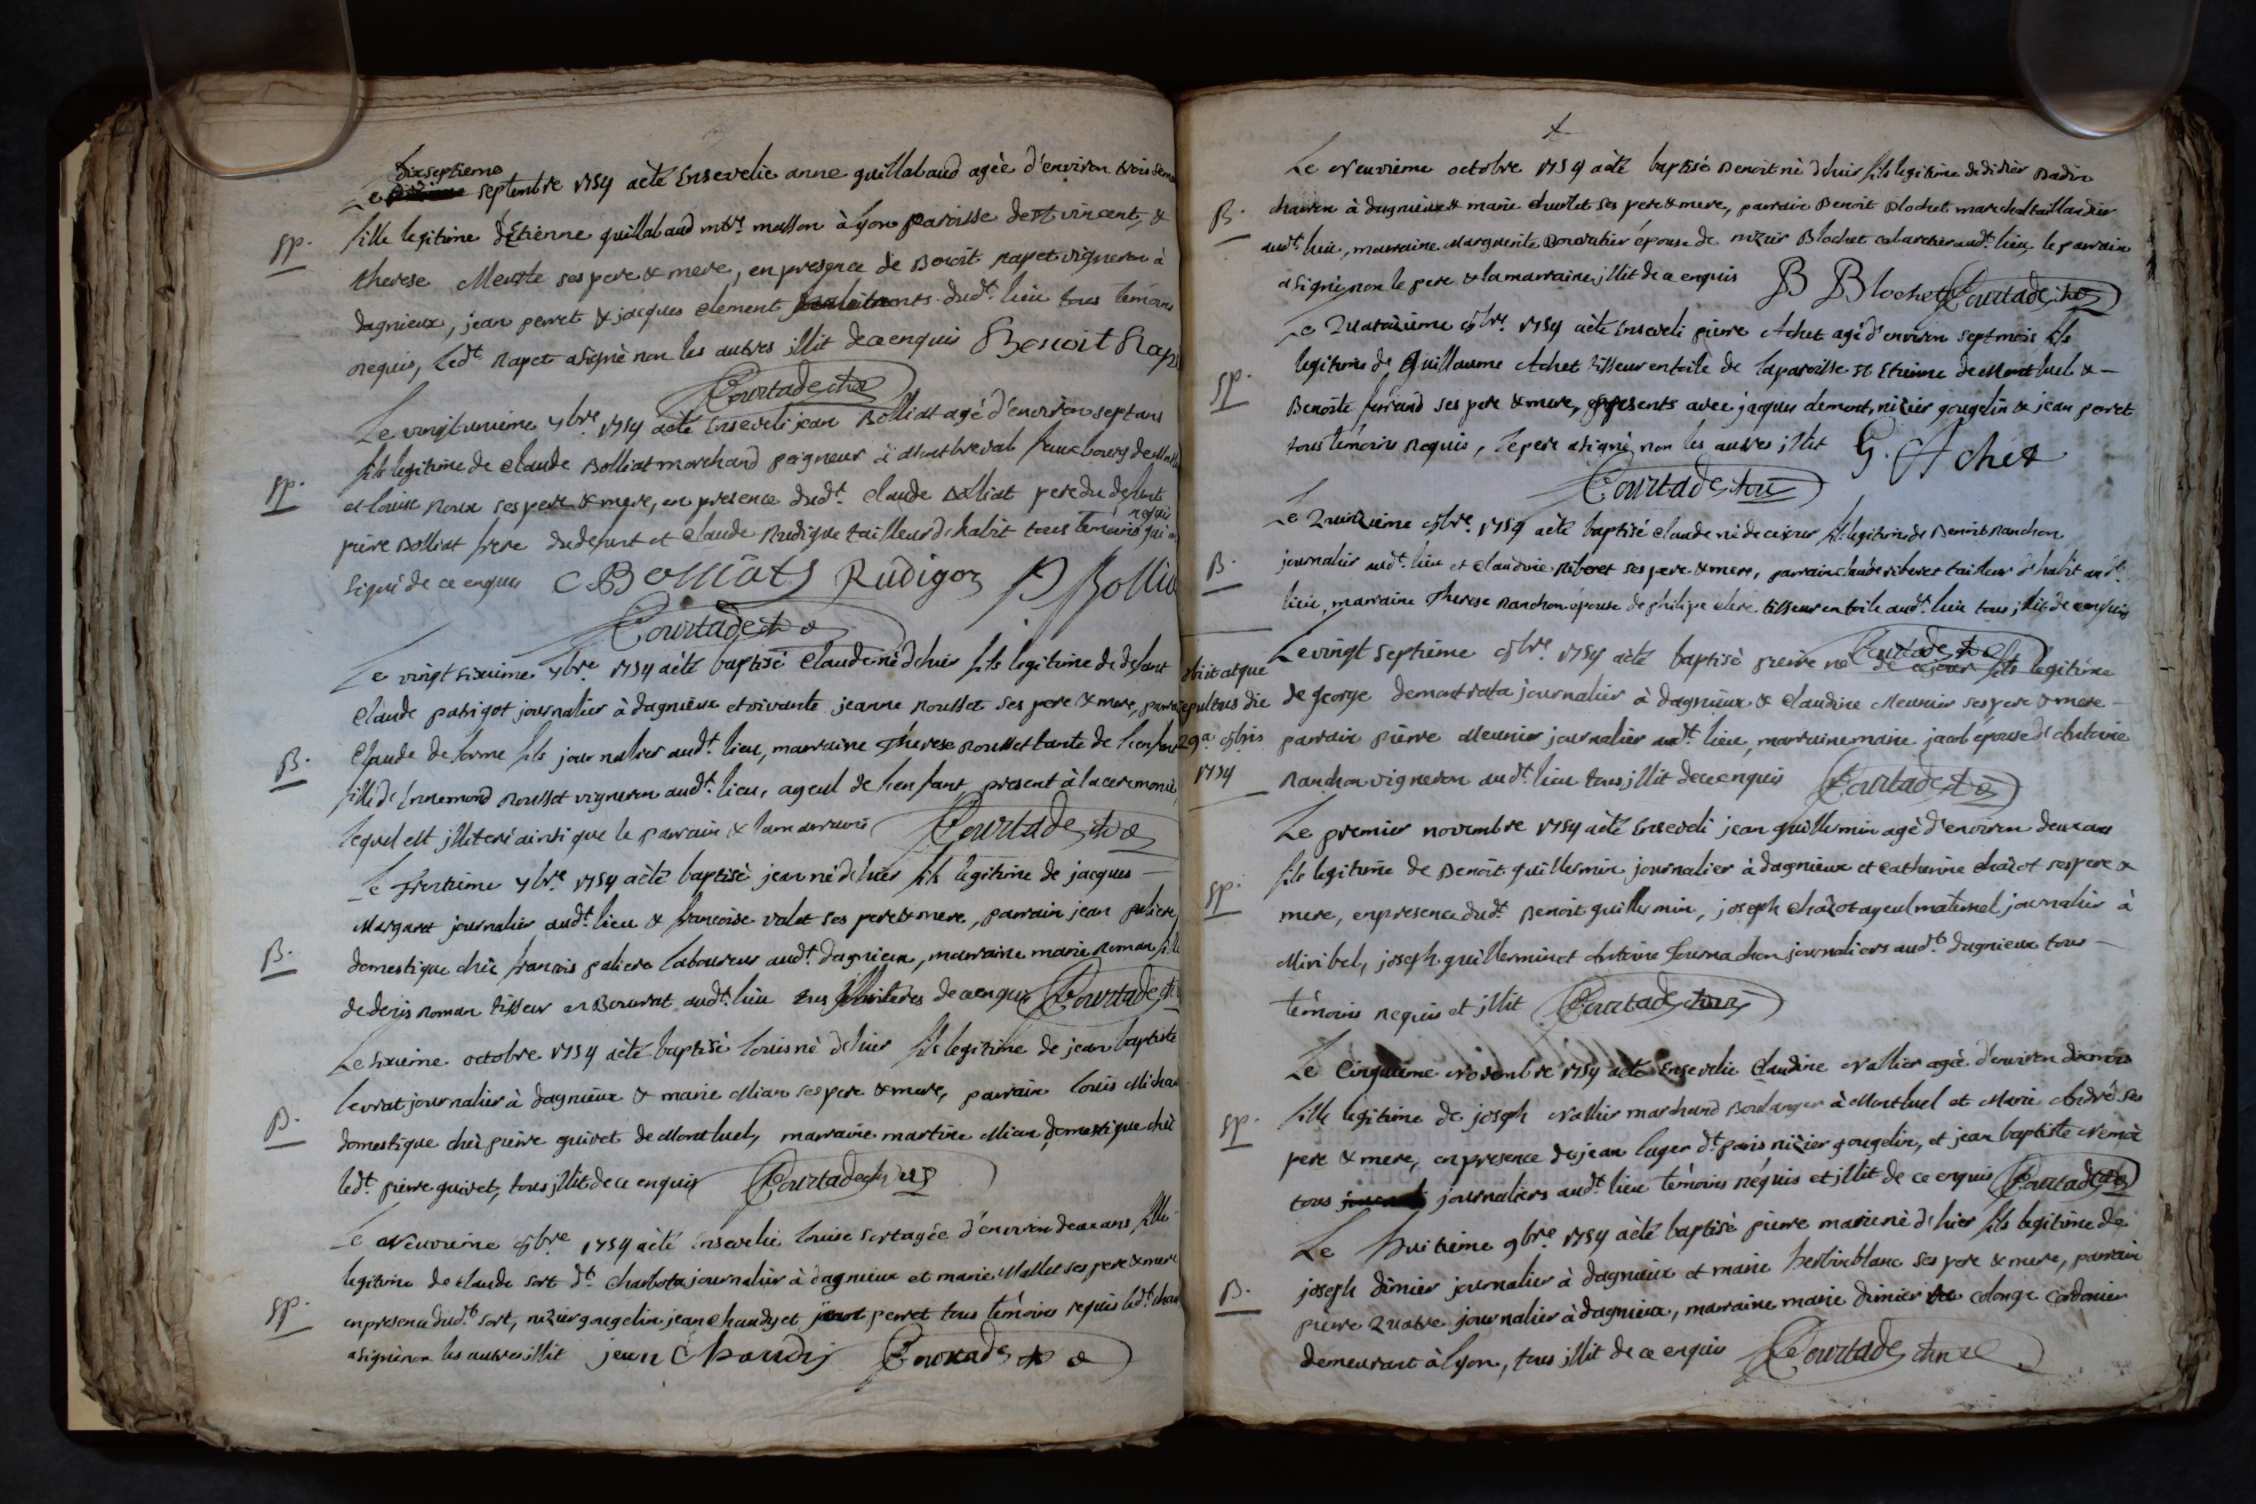 dixseptieme
Le septembre 1754 aèté Ensevelie anne guillabaud agèe d'environ trois
sp. fille legitime d'Etienne guillabaud mtre. masson à lyon paroisse de st vincent, &
therese ses pere & mere, en presence de Benoit rapet vigneron à
dagnieux, jean perret & jacques clement dudt. lieu tous temoins
requis, Ledt. rapet asignè non les autres illit de ce enquis Benoit Rap
Courtade
Le vingtunième 7bre. 1754 aèté Enseveli jean Bolliat agé d'environ sept ans
fils legitime de claude Bolliat marchand peigneur à fauxbourg de
sp. et louise roux ses pere & mere, en presence dudt. claude Bolliat pere du defunt
requis
pierre Bolliat frere du defunt et claude Rudigue tailleur d'habit tous temoins qui
signé de ce enquis C Bolliat Rudigoz P Bollia
Courtade
Le vingt sixième 7bre 1754 aèté baptisé claude né d'hier fils legitime de defunt
claude patrigot journalier à dagnieux et vivante jeanne rousset ses pere & mere,
claude fils journalier audt. lieu, marraine Therese rousset tante de l'enfant
B. fille d'Ennemond rousset vigneron audt. lieu, ayeul de l'enfant, present à la ceremonie,
lequel est illiteré ainsi que le parrain & la marraine Courtade
Le Trentième 7bre 1754 aèté baptisé jean né d'hier fils legitime de jacques
Margaret journalier audt. lieu & francoise valet ses pere & mere, parrain jean paliere
B. domestique chès francois paliere laboureur audt. dagnieux, marraine marie roman fille
de denis roman tisseur audt. lieu tous de ce enquis Courtade
Le sixième octobre 1754 aèté baptisé louis né d'hier fils legitime de jean baptiste
levrat journalier à dagnieux & marie Mian ses pere & mere, parrain louis
B. domestique chès pierre guivet de Montluel, marraine martine Mian domestique chès
ledt. pierre guivet, tous illit de ce enquis Courtade
Le Neuvième 8bre 1754 aèté Ensevelie louise sort agée d'environ deux ans, fille
legitime de claude sort dt. journalier à dagnieux et marie Mallet ses pere & mere
sp. en presence dudt. sort, nizier gougelin jean chaudy et perret tous temoins requis ledt.
asigné non les autres illit jean Chaudy Courtade
Le Neuvième octobre 1754 aèté baptisé Benoit né d'hier fils legitime de didier Badin
B. charron à dagnieux & marie ses pere & mere, parrain Benoit Blochet marechal taillandier
audt. lieu, marraine Marguerite épouse de nizier Blochet audt. lieu, le parrain
a signé non le pere & la marraine illit de ce enquis B Blochet Courtade
Le Quatorzième 8bre. 1754 aèté Enseveli pierre Achet agé d'environ sept mois fils
sp. legitime de Guillaume Achet tisseur en toile de la paroisse st Etienne de Montluel &
Benoite ferrand ses pere & mere, presents avec jacques clement, nizier gougelin & jean perret
tous témoins requis, le pere a signé non les autres illit G. Achet
Courtade
Le Quinzième 8bre. 1754 aèté baptisé claude né de ce jour fils legitime de Benoit Ranchon
B. journalier audt. lieu et claudine riberet ses pere & mere, parrain claude riberet tailleur d'habit audt.
lieu, marraine Therese Ranchon épouse de philipe tisseur en toile audt. lieu tous illit de ce enquis
Courtade
Le vingt septième 8bre. 1754 aèté baptisé pierre né de ce jour fils legitime
obiit atque
de george journalier à dagnieux & claudine Meunier ses pere & mere
sepultus die
parrain pierre Meunier journalier audt. lieu, marraine marie jacob épouse d'Antoine
29a 8bris
Ranchon vigneron audt. lieu tous illit de ce enquis Courtade
1754
Le premier novembre 1754 aèté Enseveli jean guillermin agé d'environ deux ans
fils legitime de Benoit guillermin journalier à dagnieux et catherine chazot ses pere &
sp. mere, en presence dudt. Benoit guillermin, joseph chazot ayeul maternel journalier à
Miribel, joseph guillermin et Antoine journaliers audt. dagnieux tous
témoins requis et illit Courtade
Le Cinquième Novembre 1754 aèté Ensevelie Claudine Vallier agée d'environ
sp. fille legitime de joseph Vallier marchand Boulanger à Montluel et Marie André ses
pere & mere, en presence de jean luger dt. paris nizier gougelin, et jean baptiste
tous journaliers audt. lieu témoins réquis et illit de ce enquis Courtade
Le huitième 9bre 1754 aèté baptisé pierre marie né d'hier fils legitime de
joseph dimier journalier à dagnieux et marie ses pere & mere, parrain
B. pierre Quatre journalier à dagnieux, marraine marie dimier colonge cordonier
demeurant à lyon, tous illit de ce enquis Courtade